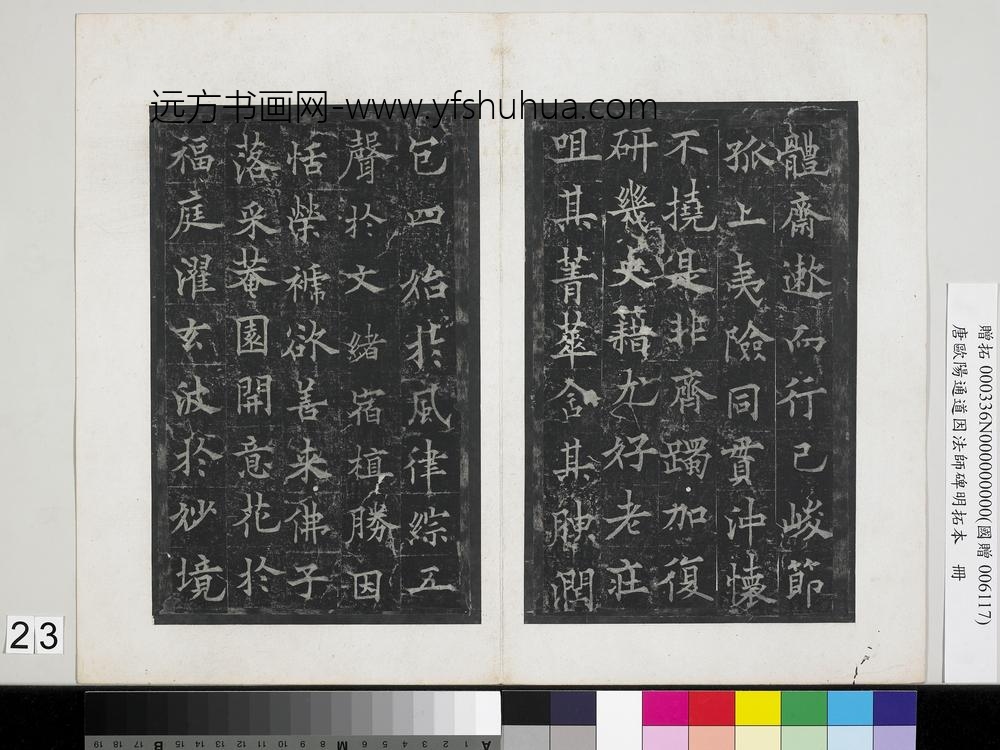 远方书画网-www.yfshuhua.com
體齋遬而行己峻節
孤上夷險同貫沖懷
不撓是非齊躅加復
研幾史籍尤好老莊
咀其菁華含其腴潤
包四始於風律綜五
聲於文緒宿植勝因
恬榮褫欲善來佛子
落采菴園開意花於
福庭濯玄波於妙境
贈拓 000336N000000000(國贈 006117)
唐歐陽通道因法師碑明拓本 冊
23